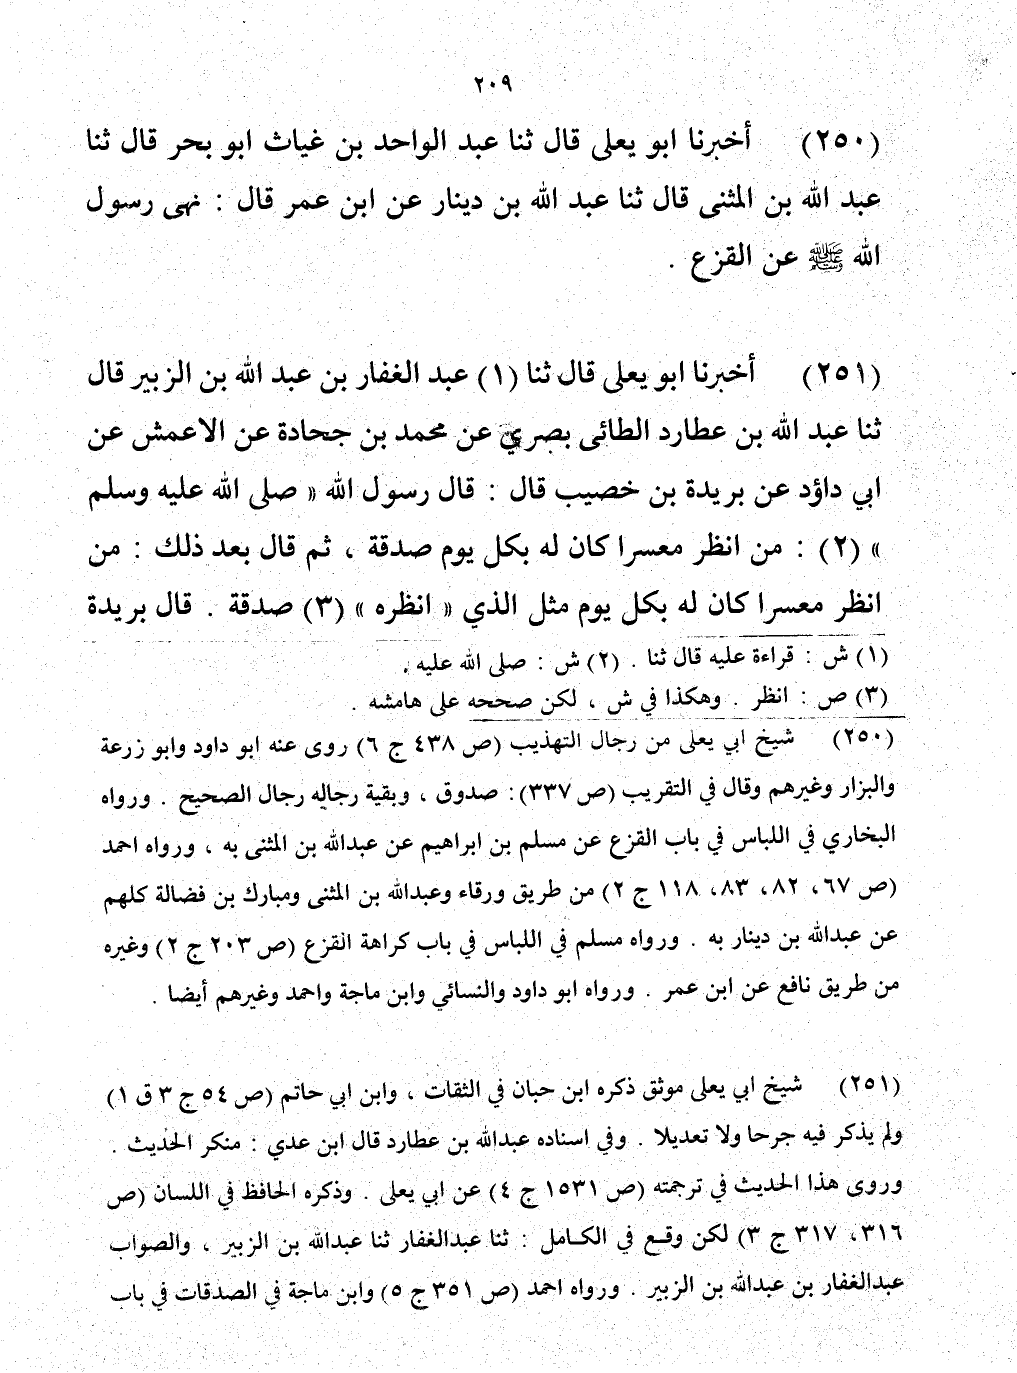 ٢٠٩
(٢٥٠) أخبرنا ابو يعلى قال ثنا عبد الواحد بن غياث ابو بحر قال ثنا
عبد الله بن المثنى قال ثنا عبد الله بن دينار عن ابن عمر قال : نهى رسول
الله ﷺ عن القزع .
(٢٥١) أخبرنا ابو يعلى قال ثنا (١) عبد الغفار بن عبد الله بن الزبير قال
ثنا عبد الله بن عطارد الطائى بصري عن محمد بن جحادة عن الاعمش عن
ابي داؤد عن بريدة بن خصيب قال : قال رسول الله « صلى الله عليه وسلم
» (٢) : من انظر معسرا كان له بكل يوم صدقة ، ثم قال بعد ذلك : من
انظر معسرا كان له بكل يوم مثل الذي « انظره » (٣) صدقة . قال بريدة
(١) ش : قراءة عليه قال ثنا . (٢) ش : صلى الله عليه .
(٣) ص : انظر . وهكذا في ش ، لكن صححه على هامشه .
(٢٥٠) شيخ ابي يعلى من رجال التهذيب (ص ٤٣٨ ج ٦) روى عنه ابو داود وابو زرعة
والبزار وغيرهم وقال في التقريب (ص ٣٣٧): صدوق ، وبقية رجاله رجال الصحيح . ورواه
البخاري في اللباس في باب القزع عن مسلم بن ابراهيم عن عبدالله بن المثنى به ، ورواه احمد
(ص ٦٧، ٨٢، ٨٣، ١١٨ ج ٢) من طريق ورقاء وعبدالله بن المثنى ومبارك بن فضالة كلهم
عن عبدالله بن دينار به . ورواه مسلم في اللباس في باب كراهة القزع (ص ٢٠٣ ج ٢) وغيره
من طريق نافع عن ابن عمر . ورواه ابو داود والنسائي وابن ماجة واحمد وغيرهم أيضا .
(٢٥١) شيخ ابي يعلى موثق ذكره ابن حبان في الثقات ، وابن ابي حاتم (ص ٥٤ ج ٣ ق ١)
ولم يذكر فيه جرحا ولا تعديلا . وفي اسناده عبدالله بن عطارد قال ابن عدي : منكر الحديث .
وروى هذا الحديث في ترجمته (ص ١٥٣١ ج ٤) عن ابي يعلى . وذكره الحافظ في اللسان (ص
٣١٦، ٣١٧ ج ٣) لكن وقع في الكامل : ثنا عبدالغفار ثنا عبدالله بن الزبير ، والصواب
عبدالغفار بن عبدالله بن الزبير . ورواه احمد (ص ٣٥١ ج ٥) وابن ماجة في الصدقات في باب